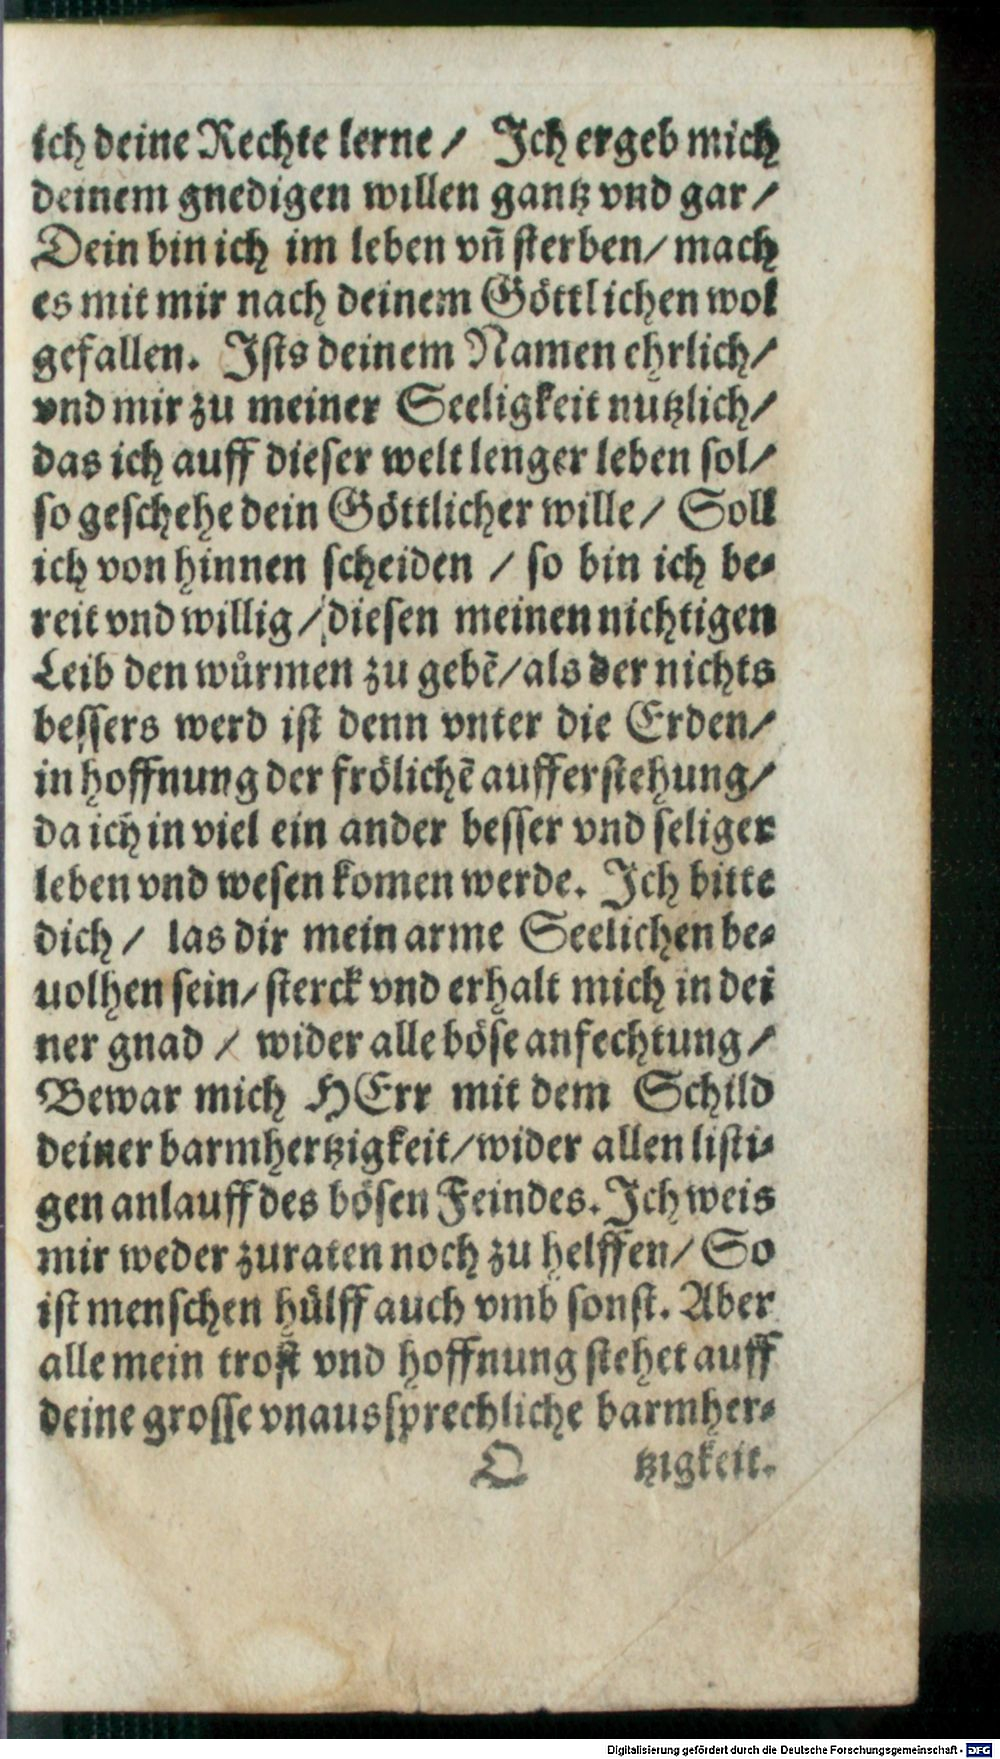 ich deine Rechte lerne / Ich ergeb mich
deinem gnedigen willen gantz vnd gar /
Dein bin ich im leben vñ sterben / mach
es mit mir nach deinem Göttlichen wol
gefallen. Ists deinem Namen ehrlich /
vnd mir zu meiner Seeligkeit nutzlich /
das ich auff dieser welt lenger leben sol /
so geschehe dein Göttlicher wille / Soll
ich von hinnen scheiden / so bin ich be-
reit vnd willig / diesen meinen nichtigen
Leib den wůrmen zu gebẽ / als der nichts
bessers werd ist denn vnter die Erden /
in hoffnung der frölichẽ aufferstehung /
da ich in viel ein ander besser vnd seliger
leben vnd wesen komen werde. Ich bitte
dich / las dir mein arme Seelichen be-
uolhen sein / sterck vnd erhalt mich in dei
ner gnad / wider alle böse anfechtung /
Bewar mich HErr mit dem Schild
deiner barmhertzigkeit / wider allen listi-
gen anlauff des bösen Feindes. Ich weis
mir weder zuraten noch zu helffen / So
ist menschen hůlff auch vmb sonst. Aber
alle mein trost vnd hoffnung stehet auff
deine grosse vnaussprechliche barmher-
O tzigkeit.
Digitalisierung gefördert durch die Deutsche Forschungsgemeinschaft - DFG